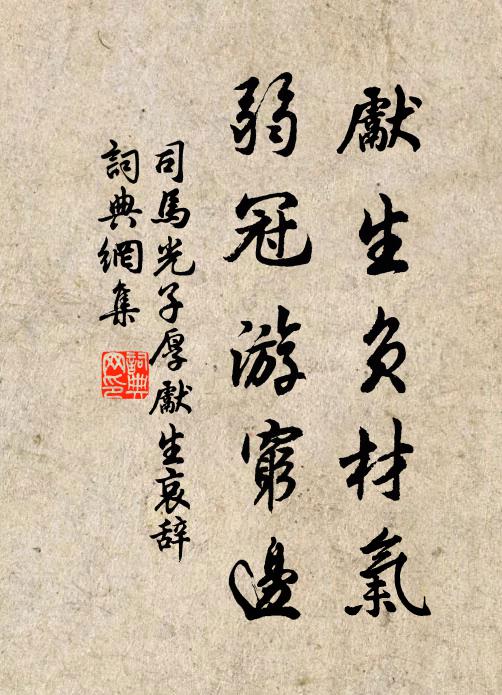 獻生負材氣
弱冠游窮邊
司馬光子厚獻生哀辞
詞典網集
詞典
网印